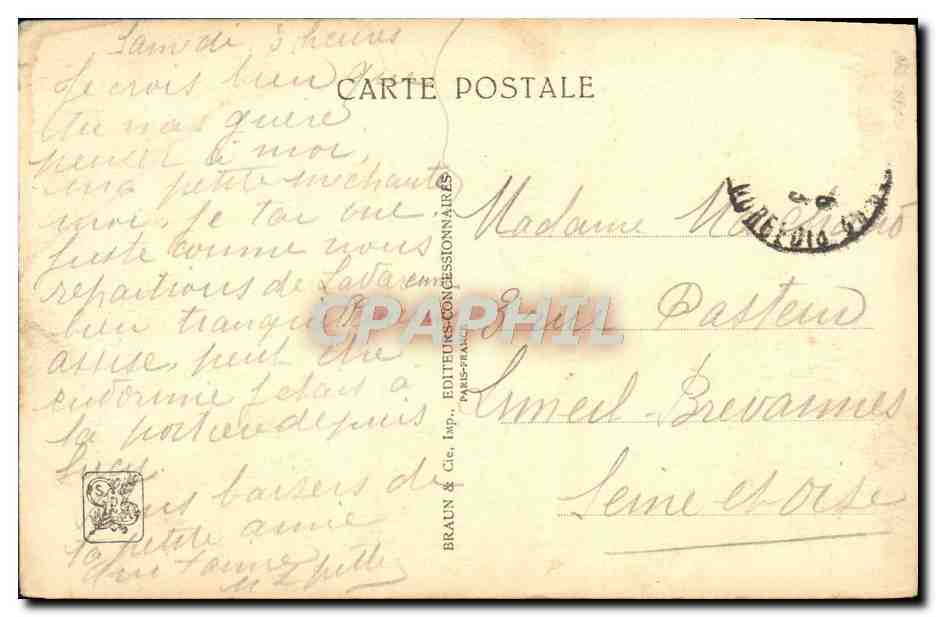 Samedi 3 heures
Je crois bien que
tu n'as guère
penser à moi,
ma petite mechante
moi, je t'ai vue.
juste comme nous
repartions de
bien tranquille
assise, peut être
endormie j'étais à
la portière depuis
baisers de
ta petite amie
CARTE POSTALE
BRAUN & Cie, Imp., EDITEURS-CONCESSIONNAIRES
PARIS-FRANCE
Madame
3 rue Pasteur
Limeil-Brevannes
Seine et oise
CPAPHIL